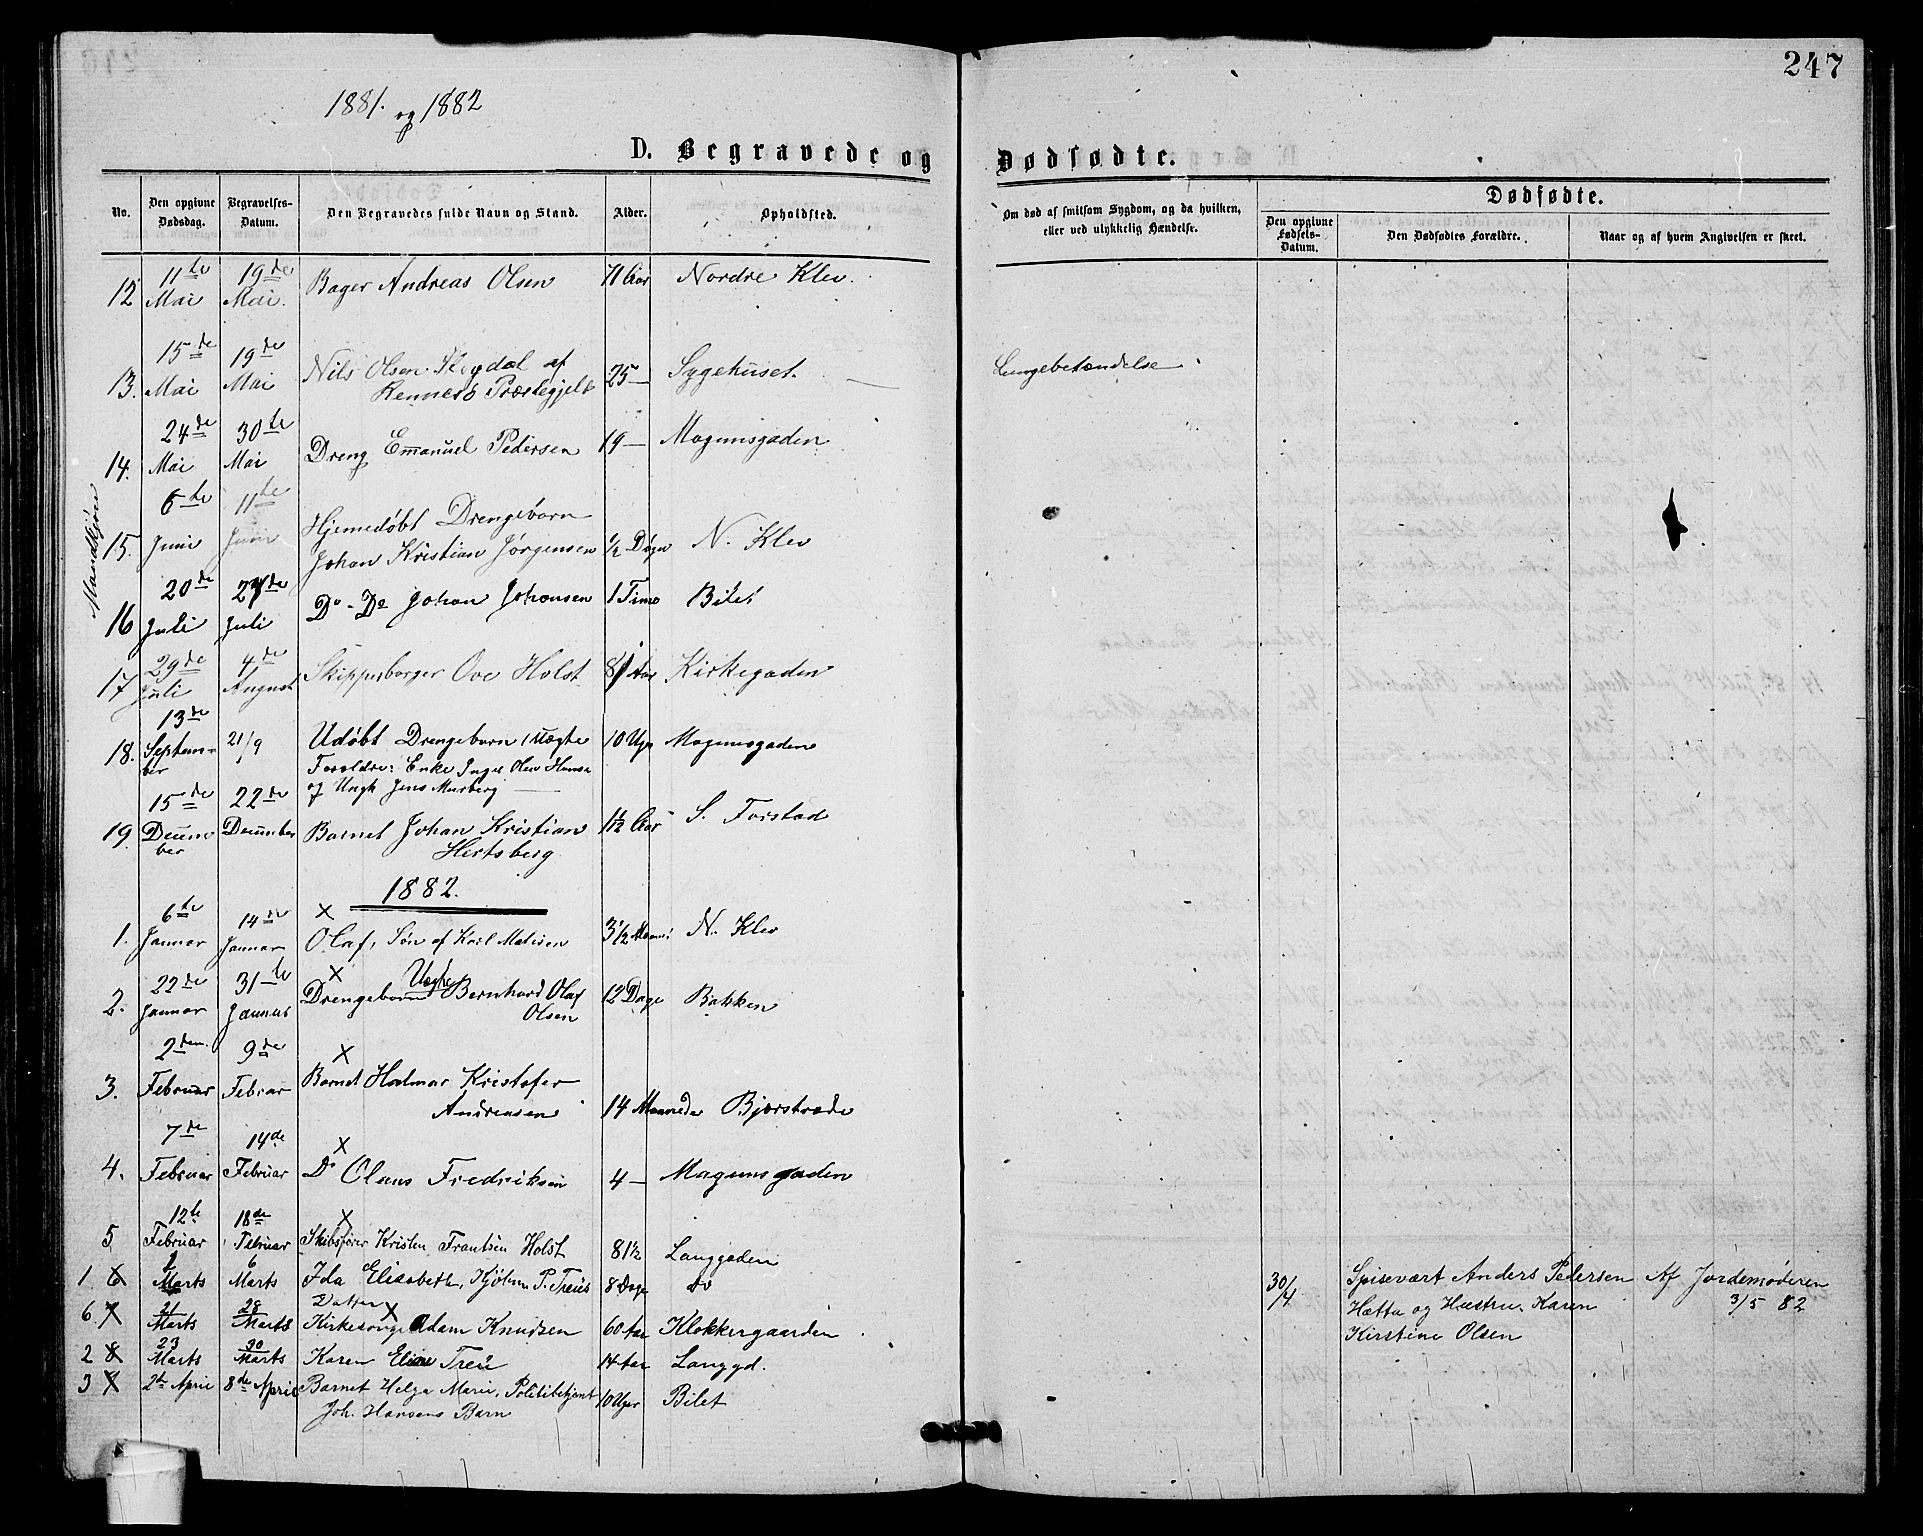 247
1881. og 1882
D. Begravede og Dødfødte.
No.
Den opgivne Dødsdag.
Begravelses-Datum.
Den Begravedes fulde Navn og Stand.
Alder.
Opholdsted.
Om død af smitsom Sygdom, og da hvilken, eller ved ulykkelig Hændelse.
Dødfødte.
Den opgivne Fødsels-Datum.
Den Dødfødtes Forældre.
Naar og af hvem Angivelsen er skeet.
Mandkjøn
12 11te Mai 19de Mai. Bager Andreas Olsen 71 Aar Nordre Klev.
13. 15de Mai 19de Mai Nils Olsen af
Rennebo Præstegjeld 25 — Sygehuset. — Lungebetændelse
14. 24de Mai 30te Mai Dreng Emanuel Pedersen 19 — Magnusgaden
15. 6te Juni 11te Juni Hjemedøbt Drengebarn
Johan Kristian Jørgensen 1/2 Døgn N. Klev
16 20de Juli 27de Juli Do - Do Johan Johansen 1 Time Bilet
17 29de Juli 4de August Skipperborger Ove Holst 81 Aar Kirkegaden
18. 13de September 21/9 Udøbt Drengebarn, Uægte 10 Uger Magnusgaden
Forældre: Enke Inger Olea
og Ungk Jens Murberg —
19. 15de December 22de December Barnet Johan Kristian
Hertsberg 1 1/2 Aar S. Forstad
1882.
1. 6te Januar 14de Januar X Olaf, Søn af Karl Matisen 3 1/2 N. Klev
2. 22de Januar 31te Januar X Drengebarn Uægte Bernhard Olaf
Olsen 12 Dage Bakken
3. 2den Februar 9de Februar X Barnet Halmar Kristofer
Andreasen 14 Maaneder Bjørstræde
4. 7de Februar 14de Februar X Do Olaus Fredriksen 4 — Magnusgaden
5 12te Februar 18de Februar X Skibsfører Kristen Frantsen Holst 81 1/2 Langgaden
1. 6 Marts 6 Marts Ida Elisabeth, Kjøbm P. Treus 8 Dage Do
Datter
6. 7 21 Marts 28 Marts X Kirkesanger Adam Knudsen 60 Aar Klokkergaarden
2 8 23 Marts 30 Marts Karen Eline Treu 14 Aar Langgd.
3 2de April 8de April Barnet Helga Marie, Politibetjent
Joh. Hansens Barn 10 Uger Bilet
30/4 Spisevært Anders Pedersen
Hætta og Hustru Karen
Kirstine Olsen
Af Jordemoderen
3/5 82